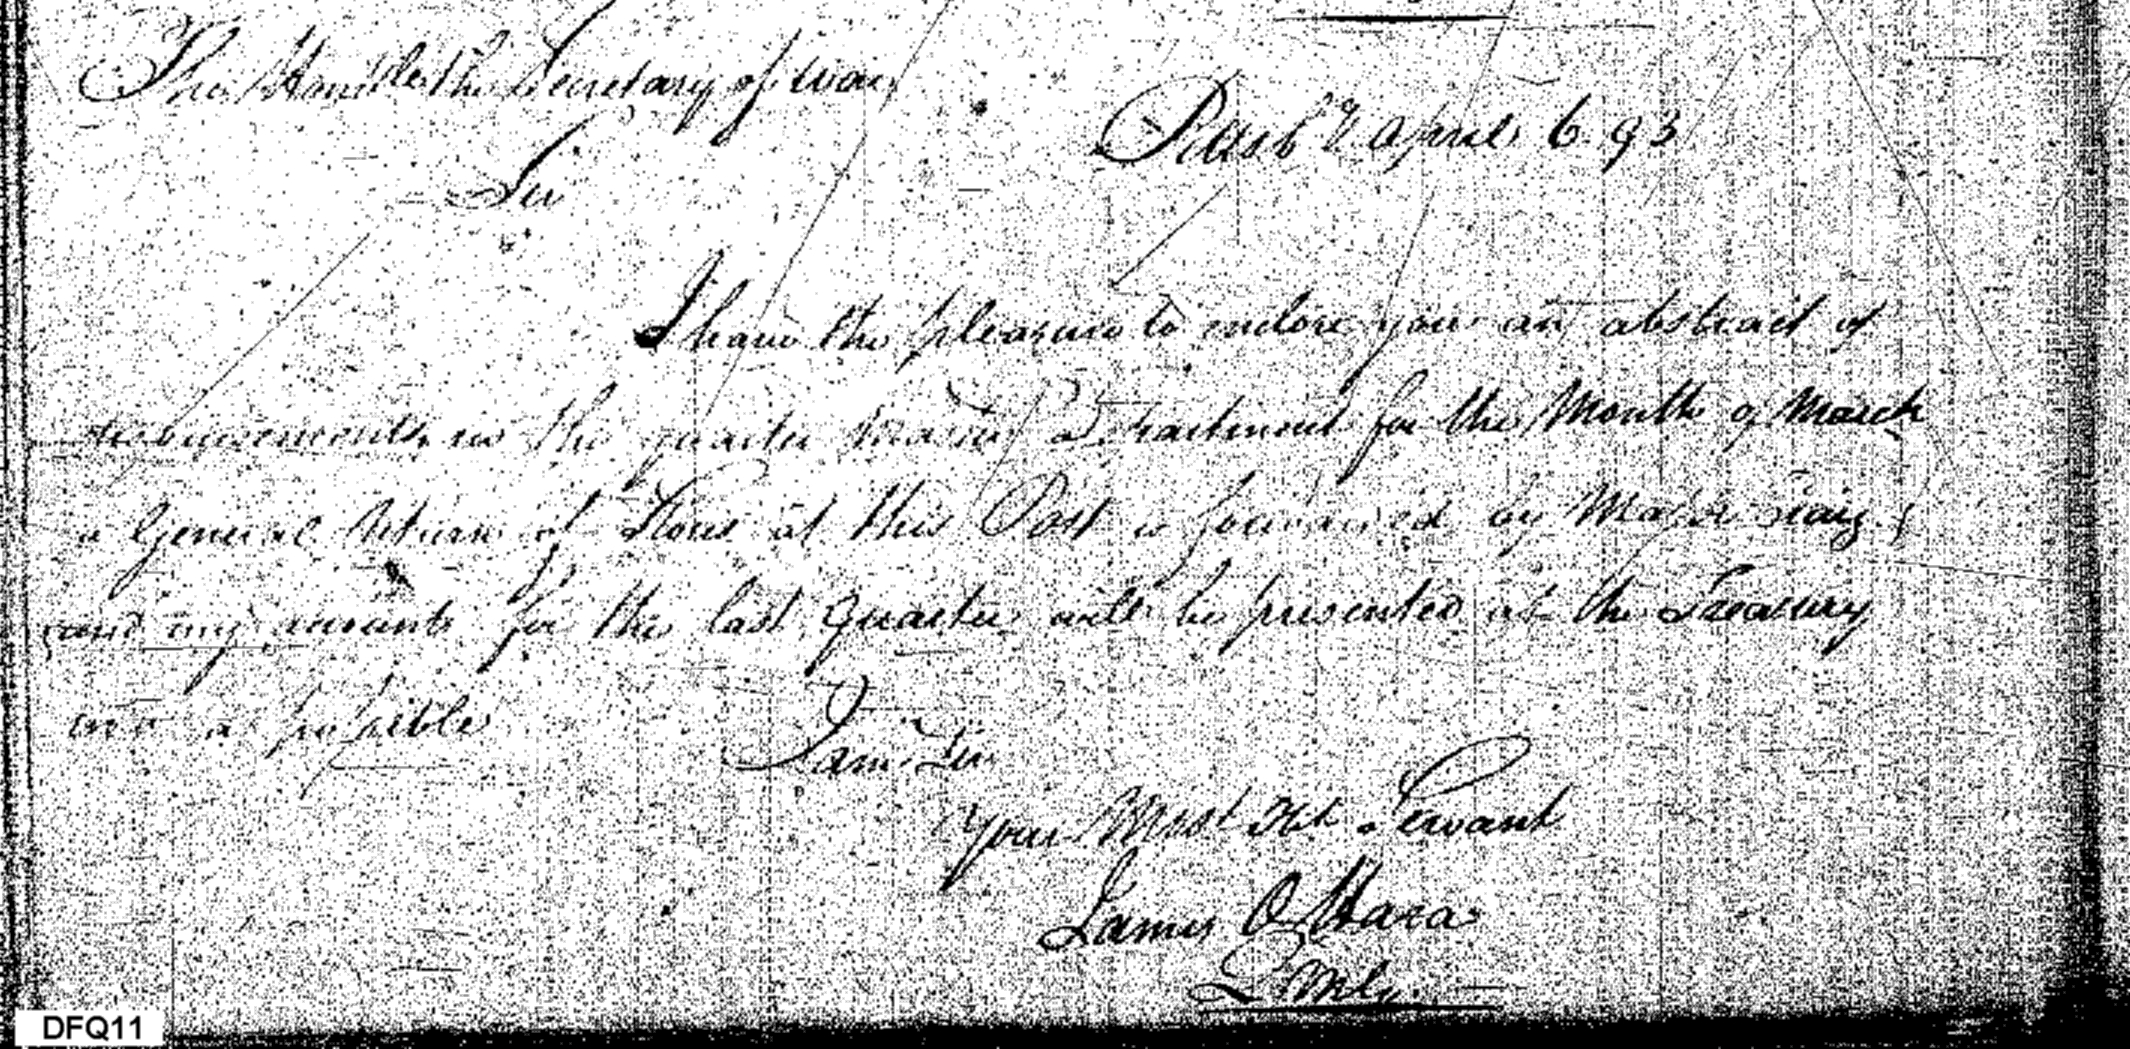 The Honble the Secretary of war
Pittsbg April 6 93
Sir
I have the pleasure to inclose you an abstract of
disbursements in the quarter Masters Department for the Month of March
a General Return of Stores at this Post is forwarded by Major Craig
and my accounts for the last Quarter will be presented at the Treasury
as possible
I am Sir
your Most Obt Servant
James O Hara
QMG
DFQ11